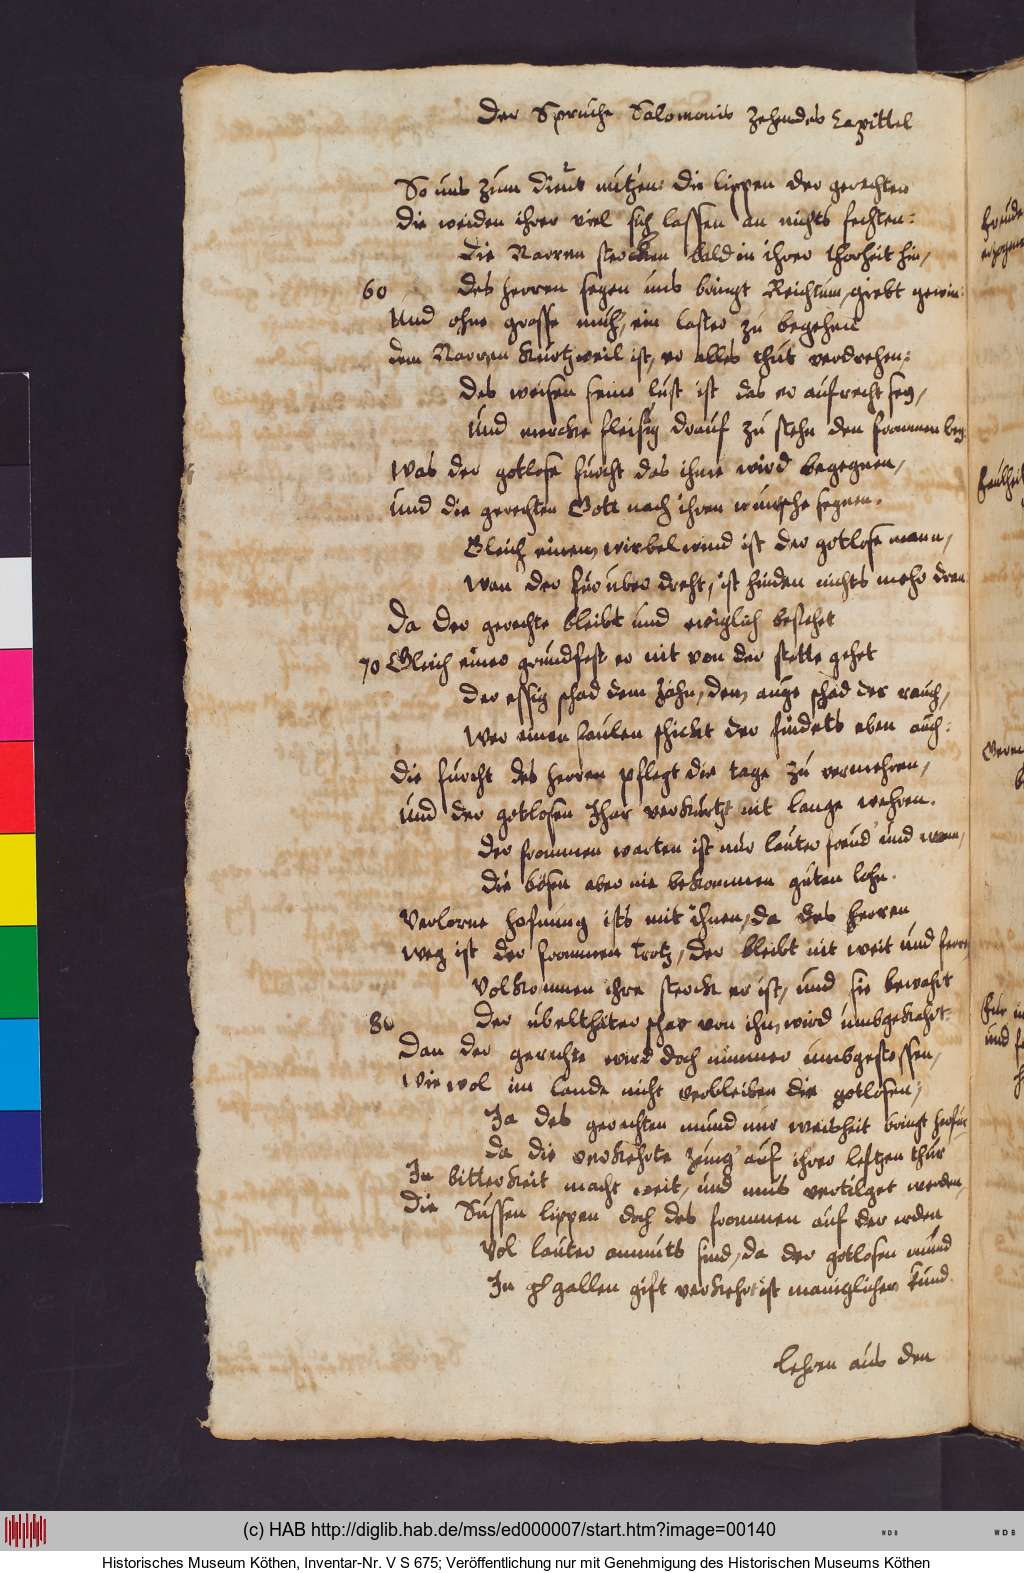 Der Sprüche Salomonis zehendes Capittel
So uns zum dienst nützen: die lippen der gerechten
Die weiden ihrer viel sich lassen an nichts fechten:
Die Narren sterben bald in ihrer thorheit hin,
60 Des herren segen uns bringt Reichtum, gibt gewin:
Und ohne grosse müh, ein laster zu begehen
dem Narren kürtzweil ist, er alles thut verdrehen:
Des weisen seine lust ist das er aufrecht sey,
Und mercke fleisig drauf zu stehn den frommen bey
Was der gotlose fürcht das ihme wird begegnen,
Und die gerechten Gott nach ihren wunsche segnen.
Gleich einem wirbelwind ist der gotlose mann,
Wan der fürüber dreht, ist hinden nichts mehr dran
Da der gerechte bleibt und ewiglich bestehet
70 Gleich einer grundfest er nit von der stette gehet
Der essig schad dem Zahn, dem auge schad der rauch,
Wer einen faulen schickt der findets eben auch:
Die furcht des herren pflegt die tage zu vermehren,
Und der gotlosen Jhar verkürtzt nit lange wehren.
Der frommen warten ist nur lauter freud und won,
Die bösen aber nie bekommen guten lohn.
Verlorne hofnung ists mit ihnen, da des herren
Weg ist der frommen trotz, der bleibt nit weit und ferre
Volkommen ihre sterck er ist, und sie bewahrt
80 Der übelthäter schar von ihm wird umbgekehrt:
Dan der gerechte wird doch nimmer umbgestossen,
Wie wol im lande nicht verbleiben die gotlosen,
Ja des gerechten mund nur weisheit bringt herfür
da die verkehrte zung auf ihrer lefzen thür
In bitterkeit macht weit, und mus vertilget werden,
Die süssen lippen doch des frommen auf der erden
Vol lauter anmuts sind, da der gotlosen mund
In gallen gift verkehrt ist mäniglichen kund.
lehren aus den
Faulheit
und
(c) HAB http://diglib.hab.de/mss/ed000007/start.htm?image=00140
WDB
WDB
Historisches Museum Köthen, Inventar-Nr. V S 675; Veröffentlichung nur mit Genehmigung des Historischen Museums Köthen